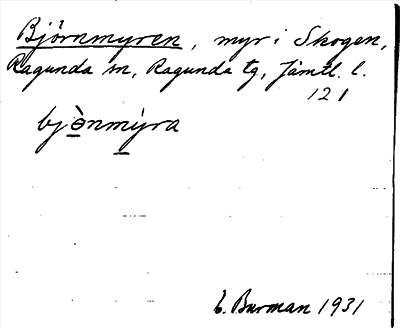 Björnmyren, myr i Skogen,
Ragunda sn, Ragunda tg, Jämtl. l.
121
bjə̀nmýra
E. Burman 1931